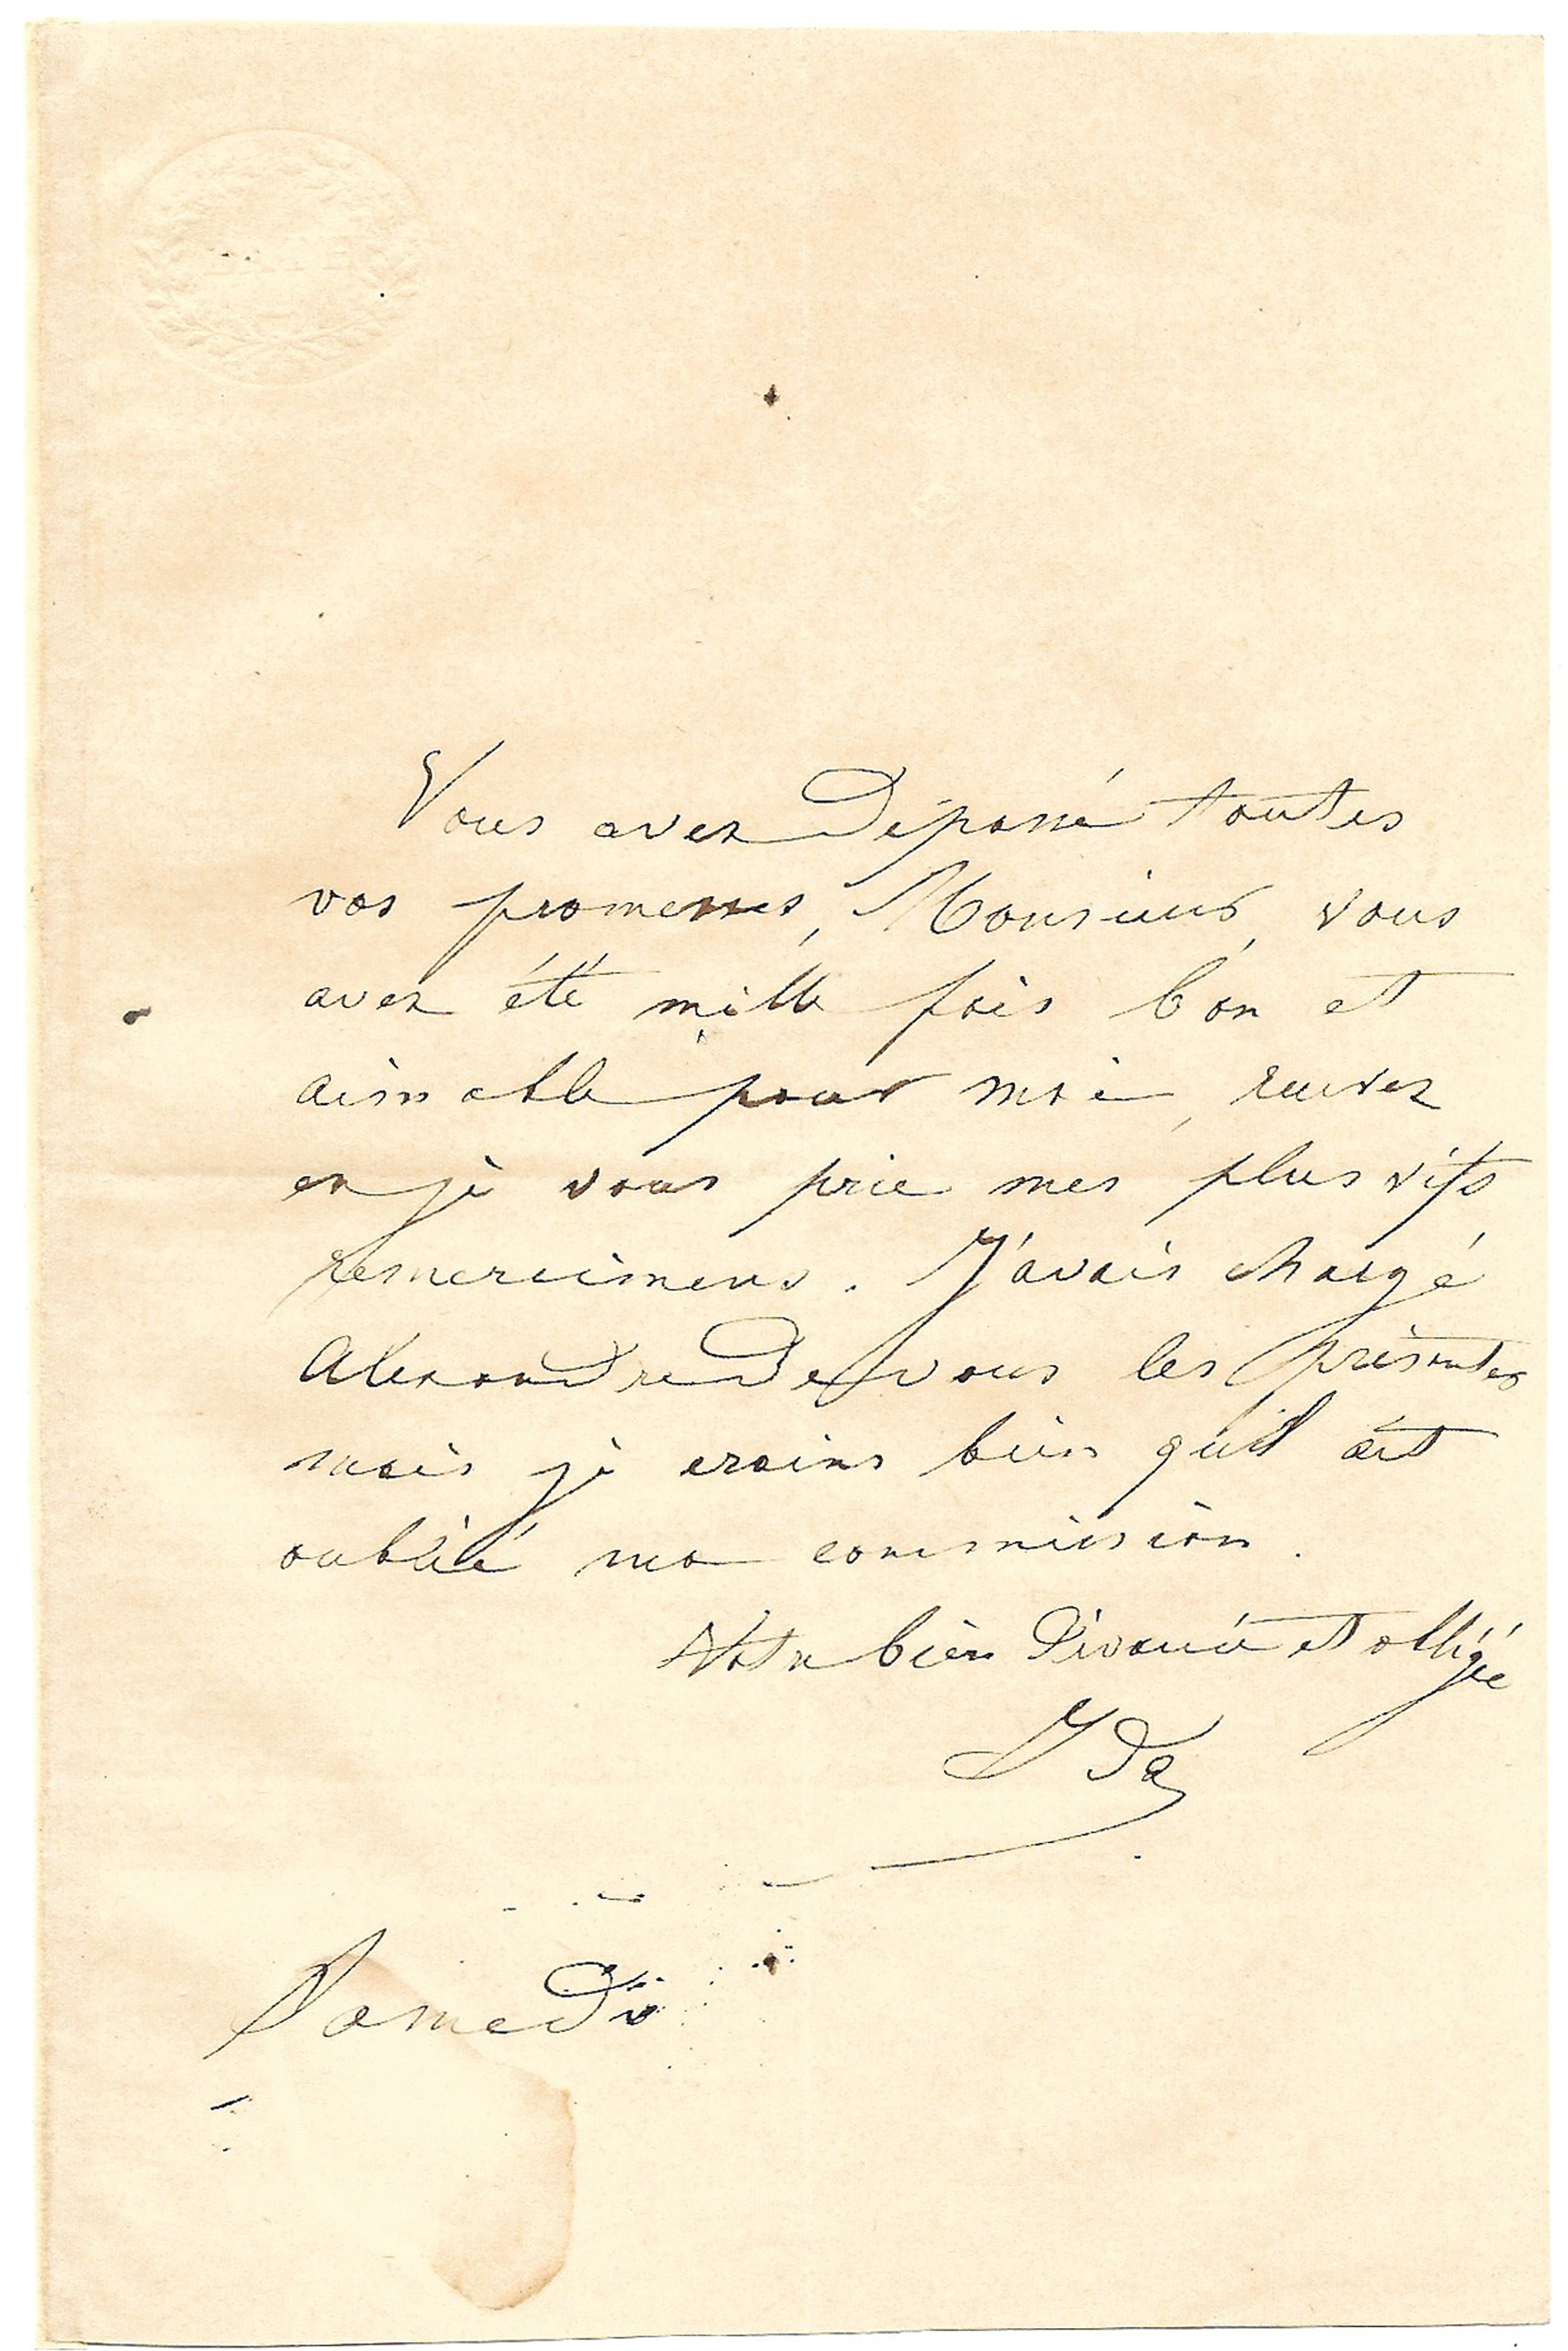 Vous avez dépassé toutes
vos promesses, Monsieur, vous
avez été mille fois bon et
aimable pour moi, recevez
en je vous prie mes plus vifs
remerciemens. J'avais chargé
Alexandre de vous les présenter
mais je crains bien qu'il ait
oublié ma commission.
Votre bien dévouée et obligée
Ida
Samedi